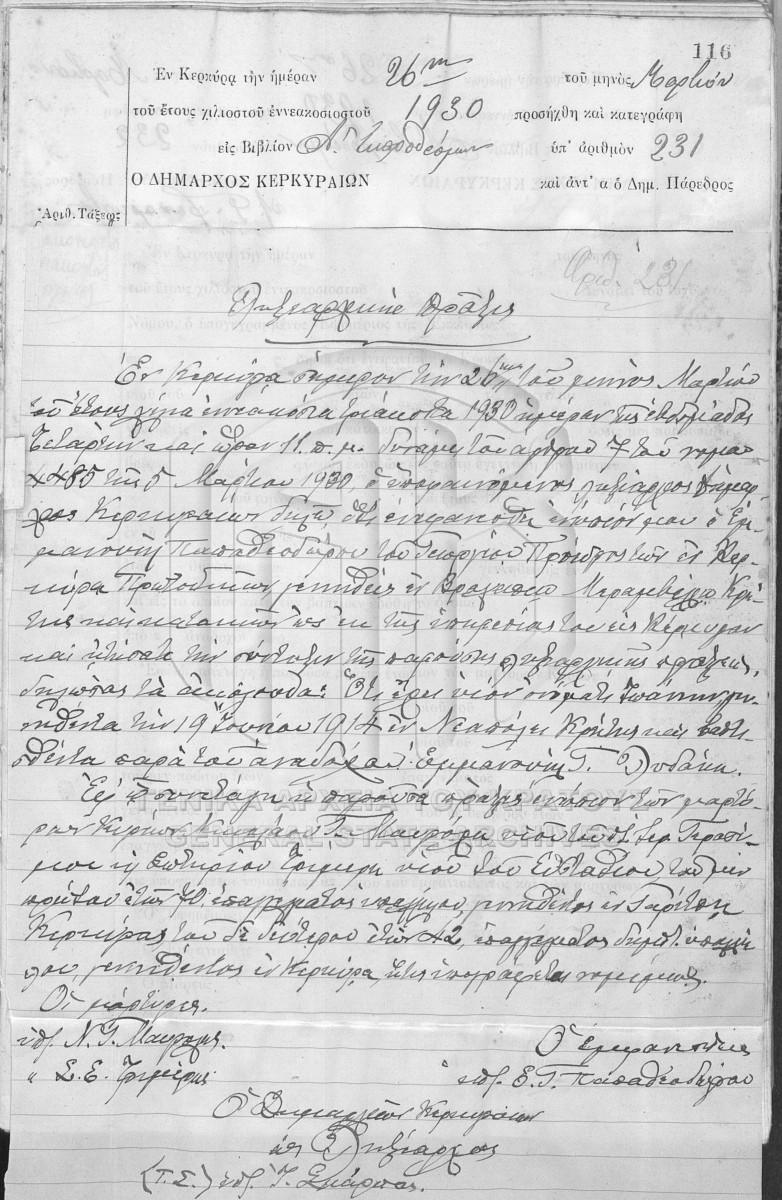 116
Ἐν Κερκύρᾳ τὴν ἡμέραν 26ην τοῦ μηνὸς Μαρτίου
τοῦ ἔτους χιλιοστοῦ ἐννεακοσιοστοῦ 1930 προσήχθη καὶ κατεγράφη
εἰς Βιβλίον ὑπ' ἀριθμὸν 231
Ο ΔΗΜΑΡΧΟΣ ΚΕΡΚΥΡΑΙΩΝ καὶ ἀντ' α ὁ Δημ. Πάρεδρος
Ἀριθ. Τάξεως
Ἀριθ. 231
Ληξιαρχική πρᾶξις
Ἐν Κερκύρᾳ σήμερον τὴν 26ην τοῦ μηνὸς Μαρτίου
τοῦ ἔτους χίλια ἐννεακόσια τριάκοντα 1930 ἡμέραν τῆς ἑβδομάδος
Τετάρτην καὶ ὥραν 11 π.μ. δυνάμει τοῦ ἄρθρου 7 τοῦ νόμου
4485 τῆς 5 Μαρτίου 1930, ὁ ὑποφαινόμενος ληξίαρχος Δήμαρ-
χος Κερκυραίων δηλῶ ὅτι ἐνεφανίσθη ἐνώπιόν μου ὁ Ἐμ-
μανουὴλ Παπαθεοδώρου τοῦ Γεωργίου Πρόεδρος τῶν ἐν Κερ-
κύρᾳ Πρωτοδικῶν, γεννηθεὶς ἐν Μεραμβέλλου Κρή-
της καὶ κατοικῶν ὡς ἐκ τῆς ὑπηρεσίας του εἰς Κέρκυραν
καὶ ἐζήτησε τὴν σύνταξιν τῆς παρούσης ληξιαρχικῆς πράξεως,
δηλώσας τὰ ἀκόλουθα: Ὅτι ἔχει υἱὸν ὀνόματι Ἰωάννην γεν-
νηθέντα τὴν 19 Ἰουνίου 1914 ἐν Νεαπόλει Κρήτης καὶ βαπτι-
σθέντα παρὰ τοῦ ἀναδόχου Ἐμμανουὴλ Γ.
Ἐφ' ᾧ συνετάγη ἡ παροῦσα πρᾶξις ἐνώπιον τῶν μαρτύ-
ρων Κυρίων Νικολάου Γ. υἱοῦ τοῦ Γερασί-
μου καὶ Σωτηρίου υἱοῦ τοῦ Εὐσταθίου τοῦ μὲν
πρώτου ἐτῶν 70, ἐπαγγέλματος γεννηθέντος ἐν Γαρίτσῃ
Κερκύρας τοῦ δὲ δευτέρου ἐτῶν 42, ἐπαγγέλματος δημοτ. ὑπαλλή-
λου, γεννηθέντος ἐν Κερκύρᾳ, ἥτις ὑπογράφεται νομίμως.
Οἱ μάρτυρες.
ὑπ. Ν. Γ.
" Σ. Ε.
Ὁ ἐμφανισθεὶς
ὑπ. Ε. Γ. Παπαθεοδώρου
Ὁ Δήμαρχος Κερκυραίων
ὡς Ληξίαρχος
(Τ.Σ.) ὑπ. Ι.
ΓΕΝΙΚΑ ΑΡΧΕΙΑ ΤΟΥ ΚΡΑΤΟΥΣ
GENERAL STATE ARCHIVES